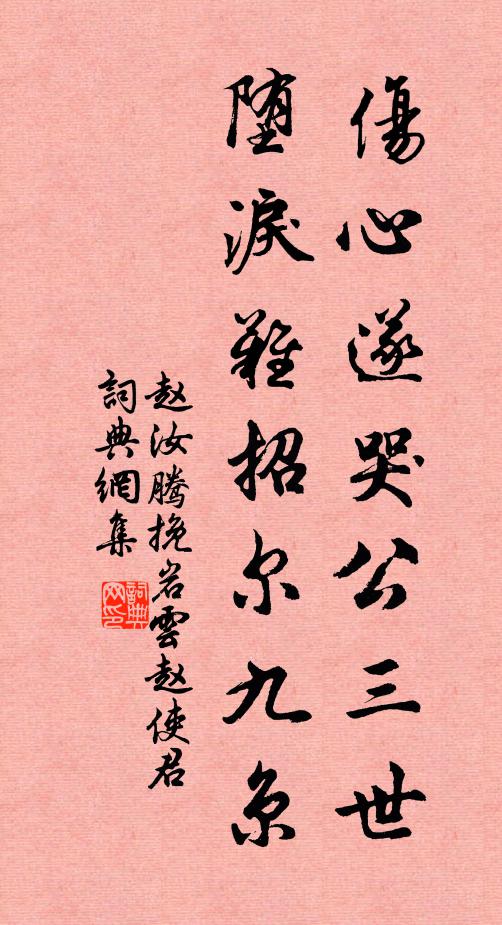 傷心遂哭公三世
堕淚難招尔九原
赵汝騰挽岩雲赵使君
詞典網集
詞典网印